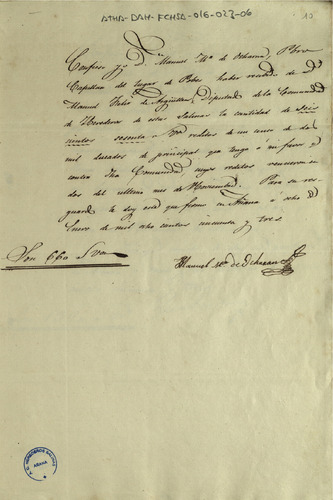 ATHA-DAH-FCHSA-016-023-06
10
Confieso yo Dn. Manuel Ma. de Ocharan, Pbro.
Capellan del lugar de Pobes haber recibido de Dn.
Manuel Felix de Angulo, Diputado de la Comunidad
de Herederos de estas Salinas la cantidad de seis
cientos sesenta rs. von reditos de un censo de dos
mil ducados de principal que tengo a mi favor y
contra dha Comunidad, cuyos reditos vencieron en
dos del ultimo mes de Noviembre. Para su res
guardo le doy este que firmo en Añana a ocho de
Enero de mil ocho cientos cincuenta y tres
Son 660 rs. von
Manuel Ma. de Ocharan
A. C. HEREDEROS SALINAS
AÑANA